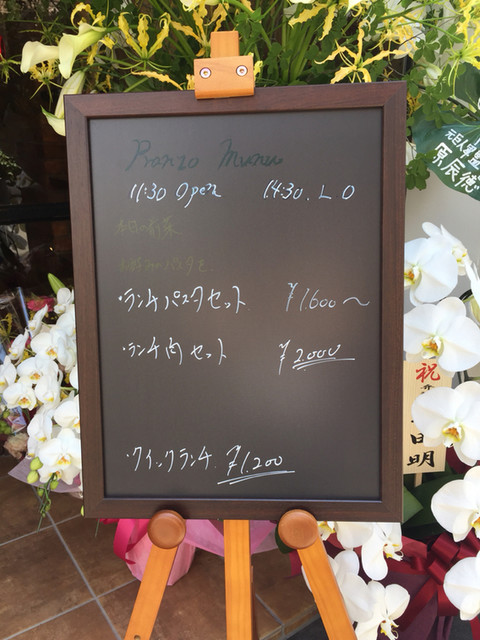 Pranzo Menu
11:30 Open 14:30. L O
・ランチパスタセット ¥1,600〜
・ランチ肉セット ¥2,000
・クイックランチ. ¥1,200
原辰徳
祝
日明